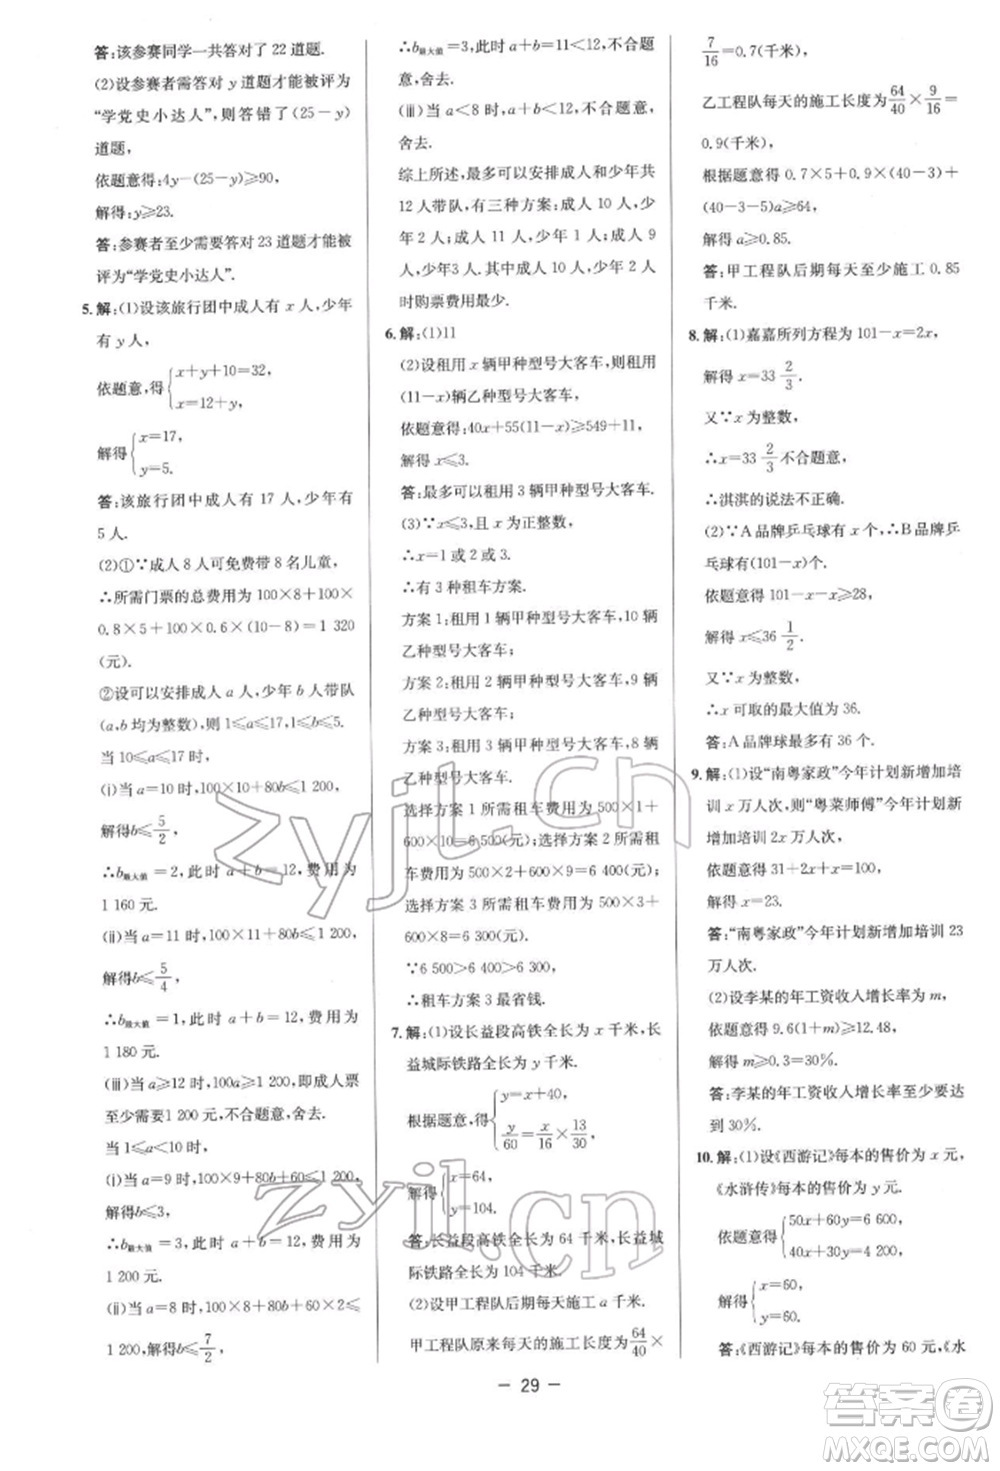 答:该参赛同学一共答对了 22 道题.
(2)设参赛者需答对 y 道题才能被评为
“学党史小达人”,则答错了(25-y)
道题,
依题意得:4y-(25-y)⩾90,
解得:y⩾23.
答:参赛者至少需要答对 23 道题才能被
评为“学党史小达人”.
5.解:(1)设该旅行团中成人有 x 人,少年
有 y 人,
依题意,得{x+y+10=32,
x=12+y,
解得{x=17,
y=5.
答:该旅行团中成人有 17 人,少年有
5 人.
(2)①∵成人 8 人可免费带 8 名儿童,
∴所需门票的总费用为 100×8+100×
0.8×5+100×0.6×(10-8)=1 320
(元).
②设可以安排成人 a 人,少年 b 人带队
(a,b 均为整数),则 1⩽a⩽17,1⩽b⩽5.
当 10⩽a⩽17 时,
(ⅰ)当 a=10 时,100×10+80b⩽1 200,
解得b⩽5/2,
∴b最大值=2,此时 a+b=12,费用为
1 160 元.
(ⅱ)当 a=11 时,100×11+80b⩽1 200,
解得b⩽5/4,
∴b最大值=1,此时 a+b=12,费用为
1 180 元.
(ⅲ)当 a⩾12 时,100a⩾1 200,即成人票
至少需要1 200元,不合题意,舍去.
当 1⩽a<10 时,
(ⅰ)当 a=9 时,100×9+80b+60⩽1 200,
解得b⩽3,
∴b最大值=3,此时 a+b=12,费用为
1 200 元.
(ⅱ)当 a=8 时,100×8+80b+60×2⩽
1 200,解得 b⩽7/2,
∴b最大值=3,此时 a+b=11<12,不合题
意,舍去.
(ⅲ)当 a<8 时,a+b<12,不合题意,
舍去.
综上所述,最多可以安排成人和少年共
12 人带队,有三种方案:成人 10 人,少
年 2 人;成人 11 人,少年 1 人;成人 9
人,少年3 人.其中成人 10 人,少年 2 人
时购票费用最少.
6.解:(1)11
(2)设租用 x 辆甲种型号大客车,则租用
(11-x)辆乙种型号大客车,
依题意得:40x+55(11-x)⩾549+11,
解得 x⩽3.
答:最多可以租用 3 辆甲种型号大客车.
(3)∵x⩽3,且 x 为正整数,
∴x=1 或 2 或 3,
∴有 3 种租车方案.
方案 1:租用 1 辆甲种型号大客车,10 辆
乙种型号大客车;
方案 2:租用 2 辆甲种型号大客车,9 辆
乙种型号大客车;
方案 3:租用 3 辆甲种型号大客车,8 辆
乙种型号大客车.
选择方案 1 所需租车费用为 500×1+
600×10=6 500(元);选择方案 2 所需租
车费用为 500×2+600×9=6 400(元);
选择方案 3 所需租车费用为 500×3+
600×8=6 300(元).
∵6 500>6 400>6 300,
∴租车方案 3 最省钱.
7.解:(1)设长益段高铁全长为 x 千米,长
益城际铁路全长为 y 千米.
根据题意,得{y=x+40,
y/60=x/16×13/30,
解得{x=64,
y=104.
答:长益段高铁全长为 64 千米,长益城
际铁路全长为 104 千米.
(2)设甲工程队后期每天施工 a 千米.
甲工程队原来每天的施工长度为64/40×
7/16=0.7(千米),
乙工程队每天的施工长度为64/40×9/16=
0.9(千米),
根据题意得 0.7×5+0.9×(40-3)+
(40-3-5)a⩾64,
解得 a⩾0.85.
答:甲工程队后期每天至少施工 0.85
千米.
8.解:(1)嘉嘉所列方程为 101-x=2x,
解得 x=33 2/3.
又∵x 为整数,
∴x=33 2/3不合题意,
∴淇淇的说法不正确.
(2)∵A 品牌乒乓球有 x 个,∴B 品牌乒
乓球有(101-x)个,
依题意得 101-x-x⩾28,
解得 x⩽36 1/2.
又∵x 为整数,
∴x 可取的最大值为 36.
答:A 品牌球最多有 36 个.
9.解:(1)设“南粤家政”今年计划新增加培
训 x 万人次,则“粤菜师傅”今年计划新
增加培训 2x 万人次,
依题意得 31+2x+x=100,
解得 x=23.
答:“南粤家政”今年计划新增加培训 23
万人次.
(2)设李某的年工资收入增长率为 m,
依题意得 9.6(1+m)⩾12.48,
解得 m⩾0.3=30%.
答:李某的年工资收入增长率至少要达
到 30%.
10.解:(1)设《西游记》每本的售价为 x 元,
《水浒传》每本的售价为 y 元.
依题意得{50x+60y=6 600,
40x+30y=4 200,
解得{x=60,
y=60.
答:《西游记》每本的售价为 60 元,《水
- 29 -
zyjl.cn
zyjl.cn
答案圈
MXQE.COM